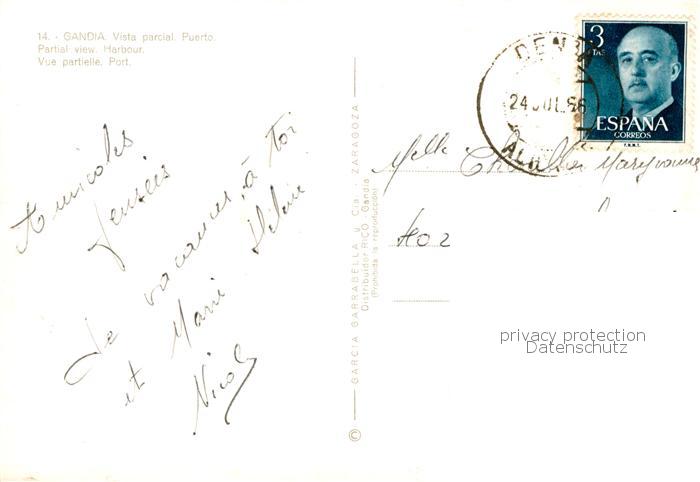 14. - GANDIA. Vista parcial. Puerto.
Partial view. Harbour.
Vue partielle. Port.
Amicales
pensées
de vacances, à toi
et Marie Hélène
Nicole
GARCIA GARRABELLA y Cia. - ZARAGOZA
Distribuidor RICO - Gandia
(Prohibida la reproducción)
©
DENIA
24 JUL 
3
PTAS
ESPAÑA
CORREOS
F.N.M.T.
Melle
privacy protection
Datenschutz